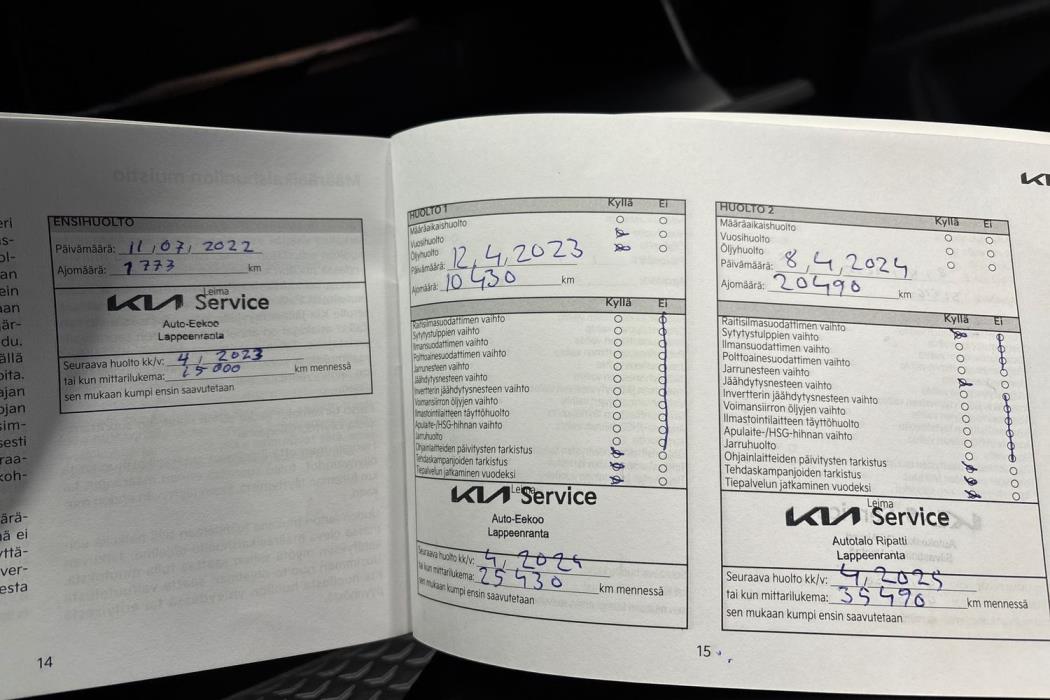 eri
s-
ol-
an
ein
aan
är-
du.
ällä
oita.
ajan
ojan
sim-
sesti
raa-
koh-
ärä-
nä ei
yttä-
ver-
esta
ENSIHUOLTO
Päivämäärä: 11,07, 2022
Ajomäärä: 1773 km
Leima
KIA Service
Auto-Eekoo
Lappeenranta
Seuraava huolto kk/v: 4, 2023
tai kun mittarilukema: 25 000 km mennessä
sen mukaan kumpi ensin saavutetaan
14
HUOLTO 1 Kyllä Ei
Määräaikaishuolto
Vuosihuolto
Öljyhuolto
Päivämäärä: 12,4,2023
Ajomäärä: 10 430 km
Kyllä Ei
Raitisilmasuodattimen vaihto
Sytytystulppien vaihto
Ilmansuodattimen vaihto
Polttoainesuodattimen vaihto
Jarrunesteen vaihto
Jäähdytysnesteen vaihto
Invertterin jäähdytysnesteen vaihto
Voimansiirron öljyjen vaihto
Ilmastointilaitteen täyttöhuolto
Apulaite-/HSG-hihnan vaihto
Jarruhuolto
Ohjainlaitteiden päivitysten tarkistus
Tehdaskampanjoiden tarkistus
Tiepalvelun jatkaminen vuodeksi
Leima
KIA Service
Auto-Eekoo
Lappeenranta
Seuraava huolto kk/v: 4, 2024
tai kun mittarilukema: 25 430 km mennessä
sen mukaan kumpi ensin saavutetaan
KIA
HUOLTO 2 Kyllä Ei
Määräaikaishuolto
Vuosihuolto
Öljyhuolto
Päivämäärä: 8,4,2024
Ajomäärä: 20490 km
Kyllä Ei
Raitisilmasuodattimen vaihto
Sytytystulppien vaihto
Ilmansuodattimen vaihto
Polttoainesuodattimen vaihto
Jarrunesteen vaihto
Jäähdytysnesteen vaihto
Invertterin jäähdytysnesteen vaihto
Voimansiirron öljyjen vaihto
Ilmastointilaitteen täyttöhuolto
Apulaite-/HSG-hihnan vaihto
Jarruhuolto
Ohjainlaitteiden päivitysten tarkistus
Tehdaskampanjoiden tarkistus
Tiepalvelun jatkaminen vuodeksi
Leima
KIA Service
Autotalo Ripatti
Lappeenranta
Seuraava huolto kk/v: 4, 2025
tai kun mittarilukema: 35490 km mennessä
sen mukaan kumpi ensin saavutetaan
15